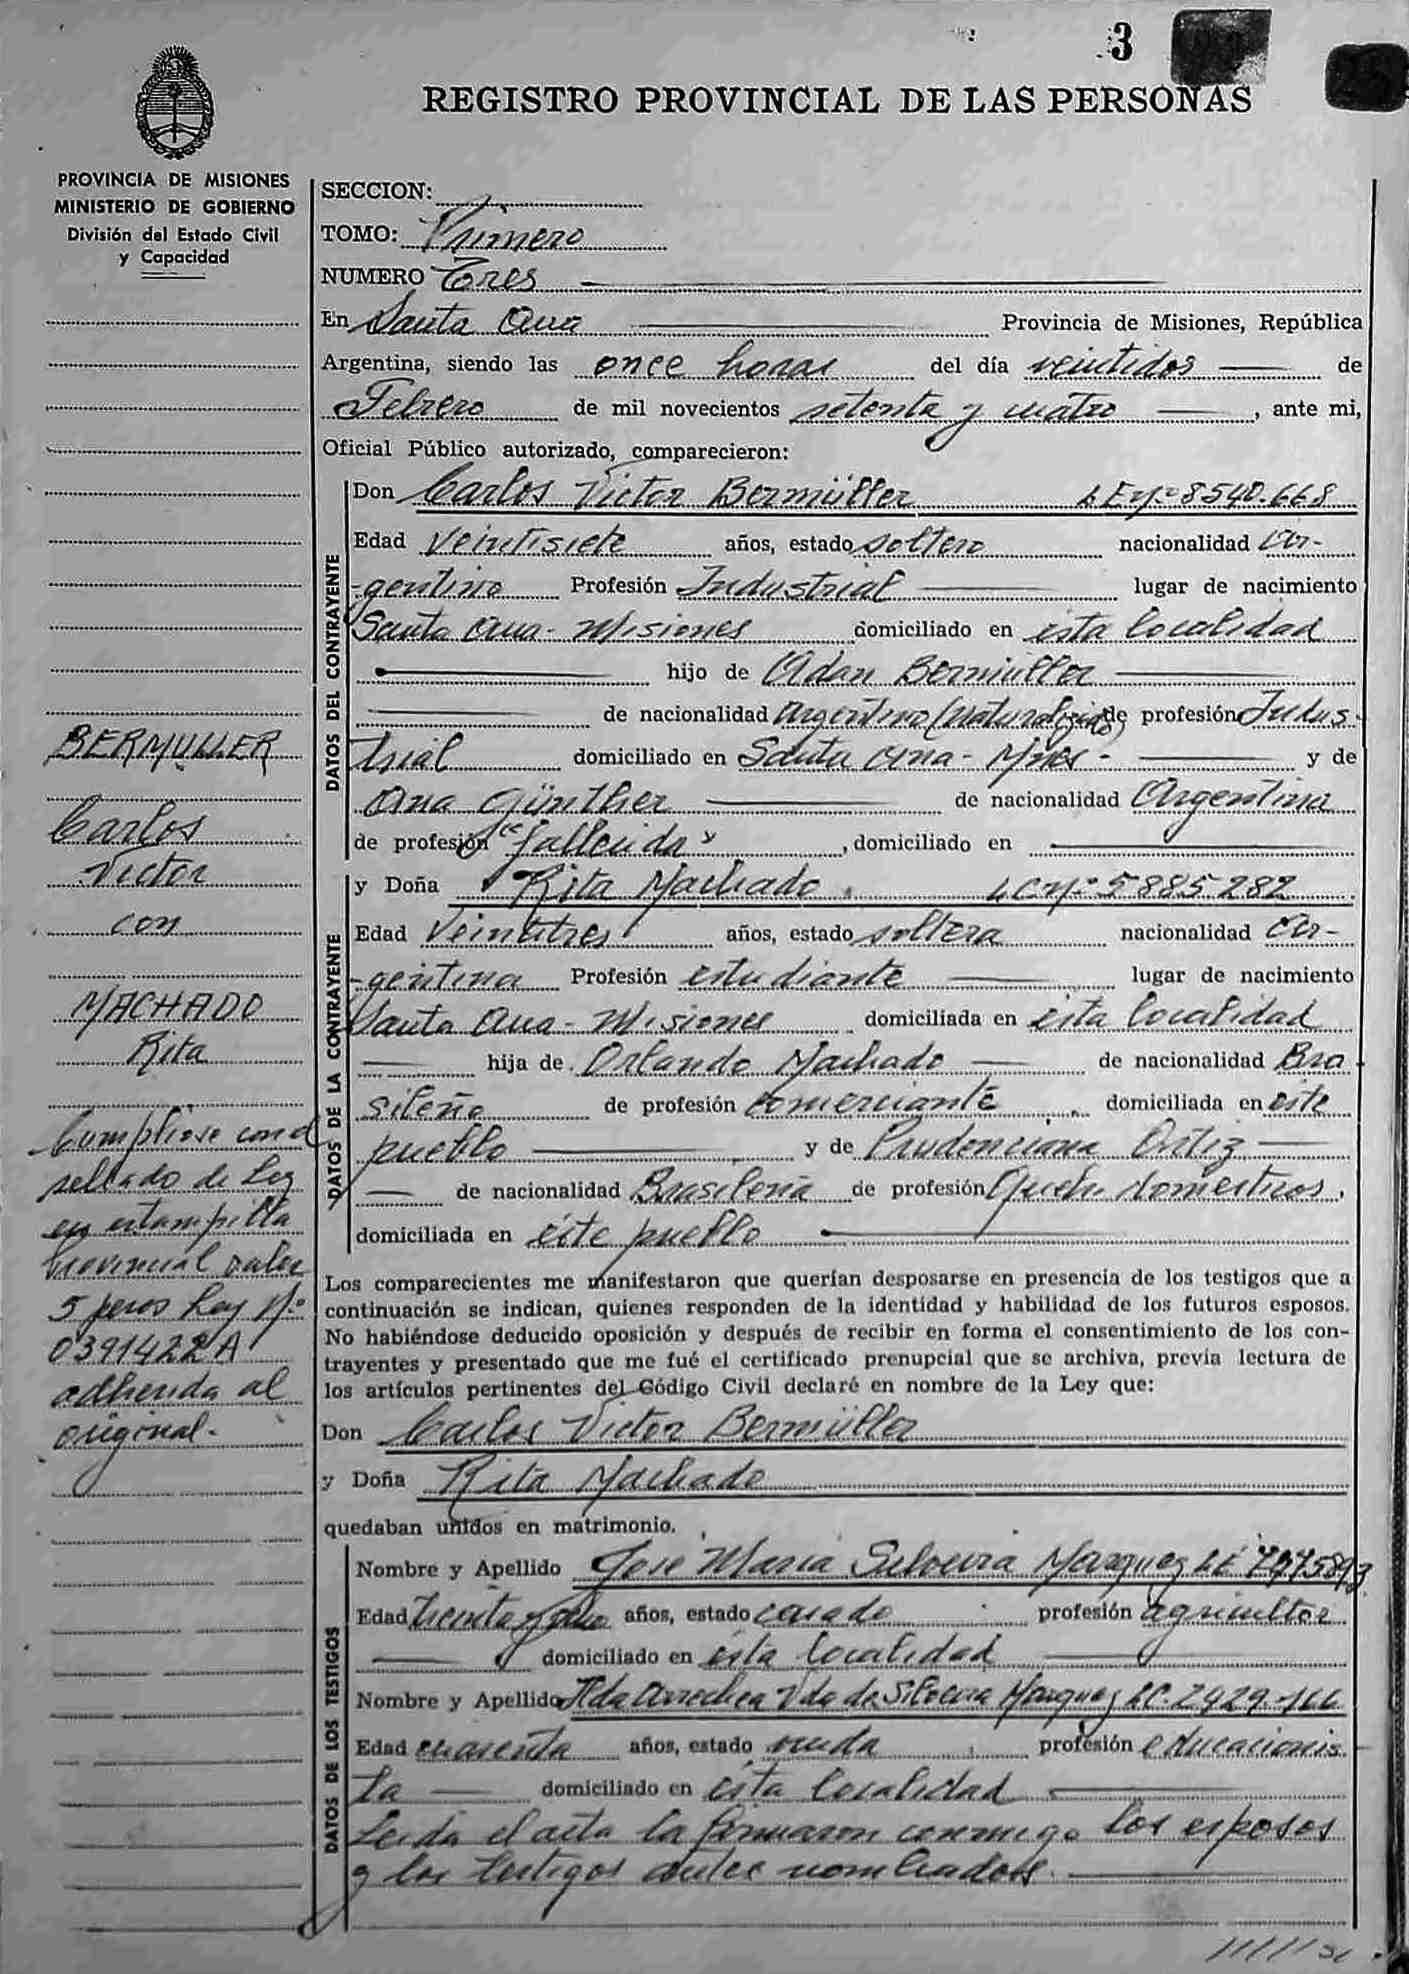 3
REGISTRO PROVINCIAL DE LAS PERSONAS
PROVINCIA DE MISIONES
MINISTERIO DE GOBIERNO
División del Estado Civil
y Capacidad
BERMULLER
Carlos
Victor
con
MACHADO
Rita
Cumpliose con el
sellado de Ley
en estampilla
provincial valor
5 pesos Ley Nº
0391422A
adherida al
original.-
SECCION:
TOMO: Primero
NUMERO Tres
En Santa Ana Provincia de Misiones, República
Argentina, siendo las once horas del día veintidos de
Febrero de mil novecientos setenta y cuatro, ante mi,
Oficial Público autorizado, comparecieron:
DATOS DEL CONTRAYENTE
Don Carlos Victor Bermüller LE Nº 8540.668
Edad Veintisiete años, estado soltero nacionalidad Ar-
-gentino Profesión Industrial lugar de nacimiento
Santa Ana - Misiones domiciliado en ésta localidad
hijo de Adan Bermüller
de nacionalidad Argentino (Naturalizado) de profesión Indus-
trial domiciliado en Santa Ana - Mnes - y de
Ana Günther de nacionalidad Argentina
de profesión "fallecida", domiciliado en
DATOS DE LA CONTRAYENTE
y Doña Rita Machado LC Nº 5885282
Edad Veintitres años, estado soltera nacionalidad Ar-
-gentina Profesión estudiante lugar de nacimiento
Santa Ana - Misiones domiciliada en ésta localidad
hija de Orlando Machado de nacionalidad Bra
sileño de profesión comerciante domiciliada en éste
pueblo y de Prudenciana Ortiz
de nacionalidad Brasileña de profesión Queh. domesticos,
domiciliada en éste pueblo
Los comparecientes me manifestaron que querían desposarse en presencia de los testigos que a
continuación se indican, quienes responden de la identidad y habilidad de los futuros esposos.
No habiéndose deducido oposición y después de recibir en forma el consentimiento de los con-
trayentes y presentado que me fué el certificado prenupcial que se archiva, previa lectura de
los artículos pertinentes del Código Civil declaré en nombre de la Ley que:
Don Carlos Victor Bermüller
y Doña Rita Machado
quedaban unidos en matrimonio.
DATOS DE LOS TESTIGOS
Nombre y Apellido Jose Maria Silveira Marquez LE
Edad treinta y años, estado casado profesión agricultor
domiciliado en ésta localidad
Nombre y Apellido Arrechea Vda de Silveira Marquez LC. 2929.166
Edad cuarenta años, estado viuda profesión educacionis-
ta domiciliado en ésta localidad
Leida el acta la firmaron conmigo los esposos
y los testigos antes nombrados.